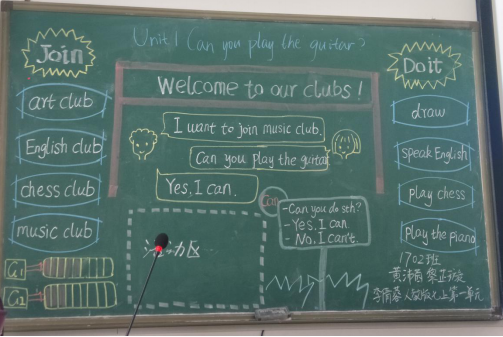 Unit 1 Can you play the guitar?
Join
Do it
Welcome to our clubs!
art club
English club
chess club
music club
I want to join music club.
Can you play the guitar
Yes, I can.
Can
-Can you do sth?
-Yes, I can.
-No, I can't.
draw
speak English
play chess
play the piano
力区
G1
G2
1702班
人教版七上第一单元